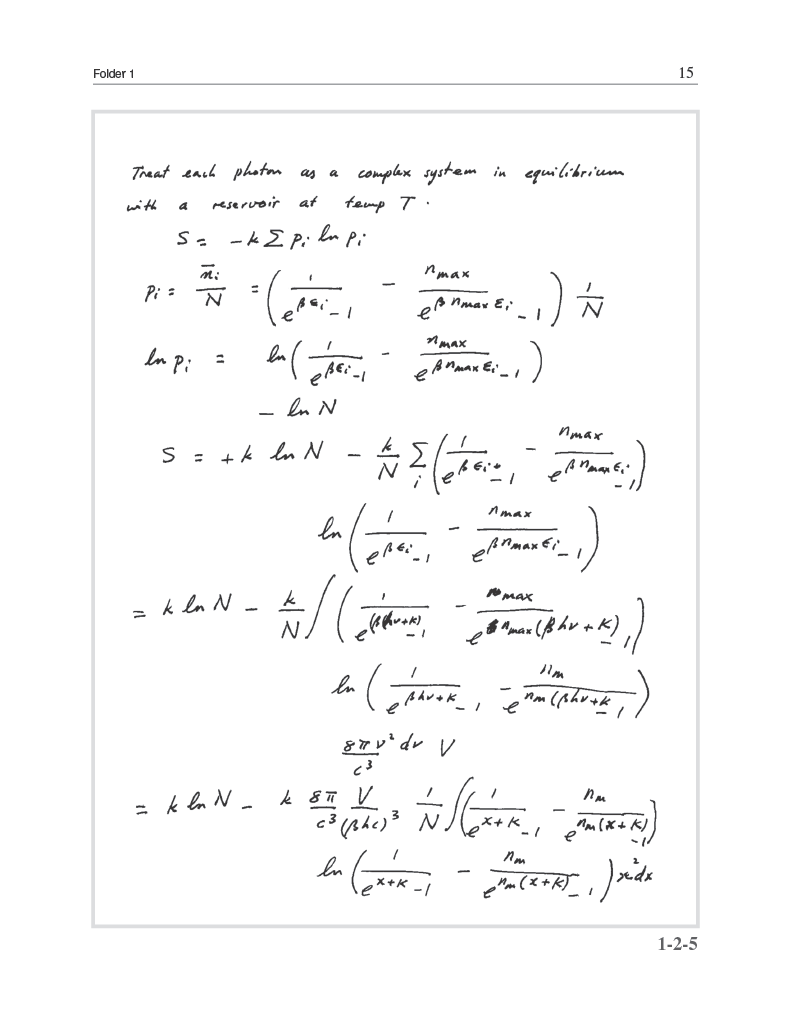 Folder 1 15
Treat each photon as a complex system in equilibrium
with a reservoir at temp T.
S = -k Σ pᵢ ln pᵢ
pᵢ = n̄ᵢ/N = (1/(e^{βεᵢ} - 1) - n_max/(e^{β n_max εᵢ} - 1)) 1/N
ln pᵢ = ln(1/(e^{βεᵢ} - 1) - n_max/(e^{β n_max εᵢ} - 1))
- ln N
S = +k ln N - k/N Σᵢ (1/(e^{βεᵢ} - 1) - n_max/(e^{β n_max εᵢ} - 1))
ln(1/(e^{βεᵢ} - 1) - n_max/(e^{β n_max εᵢ} - 1))
= k ln N - k/N ∫(1/(e^{(βhν+K)} - 1) - n_max/(e^{n_max(βhν+K)} - 1))
ln(1/(e^{βhν+K} - 1) - n_m/(e^{n_m(βhν+K} - 1))
8πν²dν/c³ V
= k ln N - k 8π/c³ V/(βhc)³ 1/N ∫(1/(e^{x+K} - 1) - n_m/(e^{n_m(x+K)} - 1))
ln(1/(e^{x+K} - 1) - n_m/(e^{n_m(x+K)} - 1)) x²dx
1-2-5